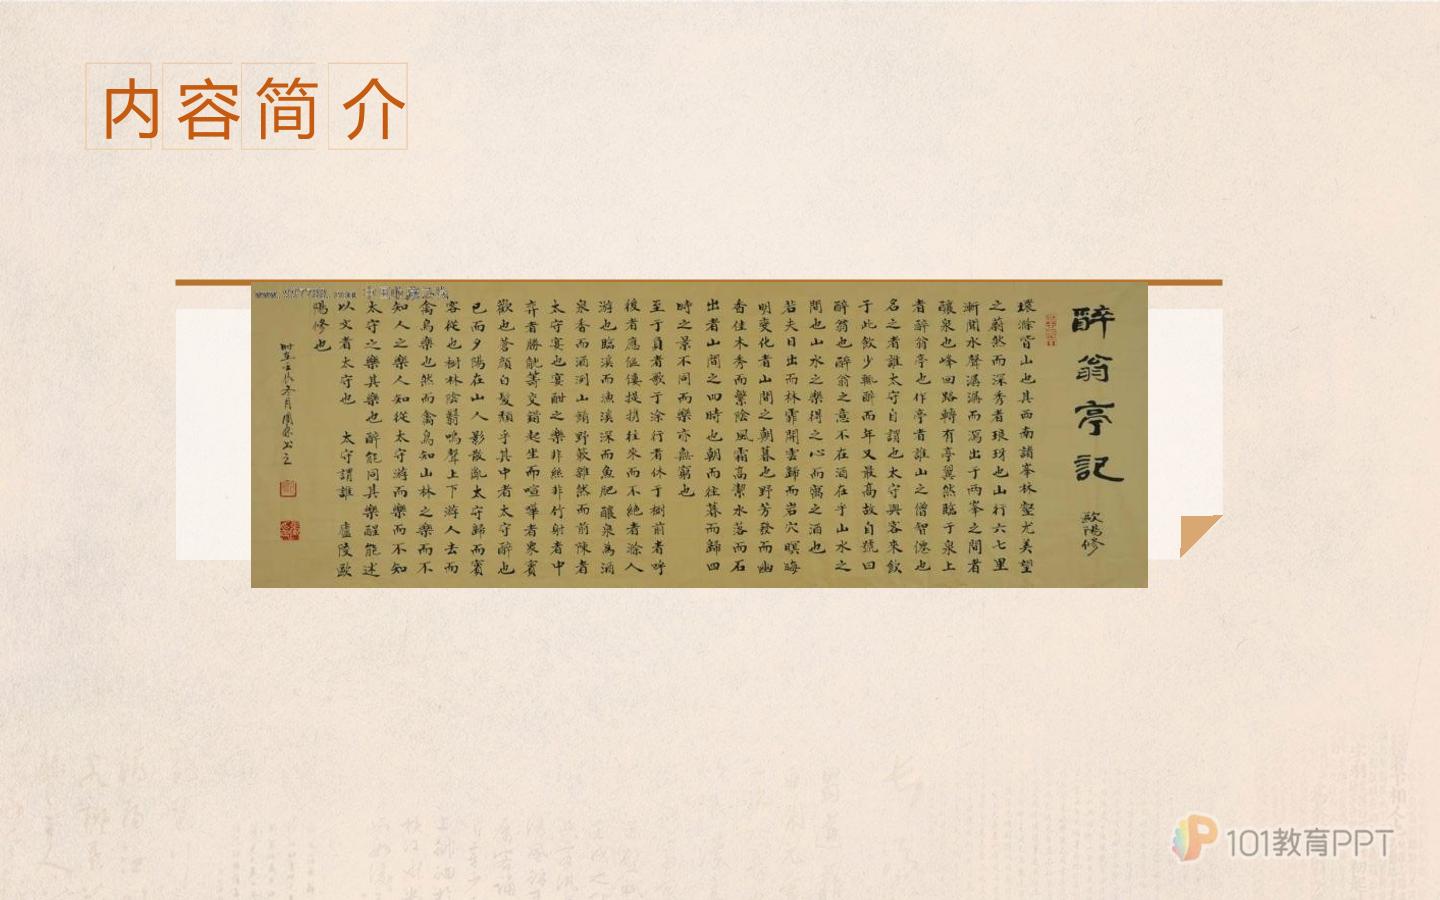 内容简介
醉翁亭記
歐陽修
環滁皆山也其西南諸峯林壑尤美望
之蔚然而深秀者琅玡也山行六七里
漸聞水聲潺潺而瀉出于兩峯之間者
釀泉也峰回路轉有亭翼然臨于泉上
者醉翁亭也作亭者誰山之僧智僊也
名之者誰太守自謂也太守與客來飲
于此飲少輒醉而年又最高故自號曰
醉翁也醉翁之意不在酒在乎山水之
間也山水之樂得之心而寓之酒也
若夫日出而林霏開雲歸而岩穴暝晦
明變化者山間之朝暮也野芳發而幽
香佳木秀而繁陰風霜高潔水落而石
出者山間之四時也朝而往暮而歸四
時之景不同而樂亦無窮也
至于負者歌于涂行者休于樹前者呼
後者應傴僂提携往來而不絕者滁人
游也臨溪而漁溪深而魚肥釀泉為酒
泉香而酒洌山餚野蔌雜然而前陳者
太守宴也宴酣之樂非絲非竹射者中
弈者勝觥籌交錯起坐而喧嘩者衆賓
歡也蒼顏白髮頹乎其中者太守醉也
已而夕陽在山人影散亂太守歸而賓
客從也樹林陰翳鳴聲上下游人去而
禽鳥樂也然而禽鳥知山林之樂而不
知人之樂人知從太守游而樂而不知
太守之樂其樂也醉能同其樂醒能述
以文者太守也 太守謂誰 廬陵歐
陽修也
101教育PPT